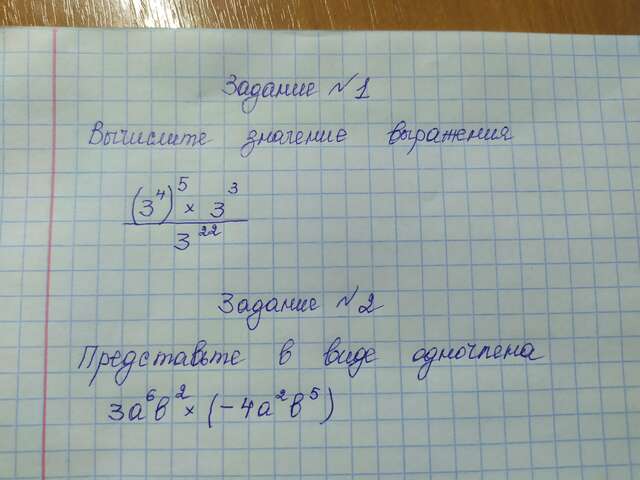 Задание №1
Вычислите значение выражения
(3⁴)⁵ × 3³
3²²
Задание №2
Представьте в виде одночлена
3а⁶в² × (-4а²в⁵)